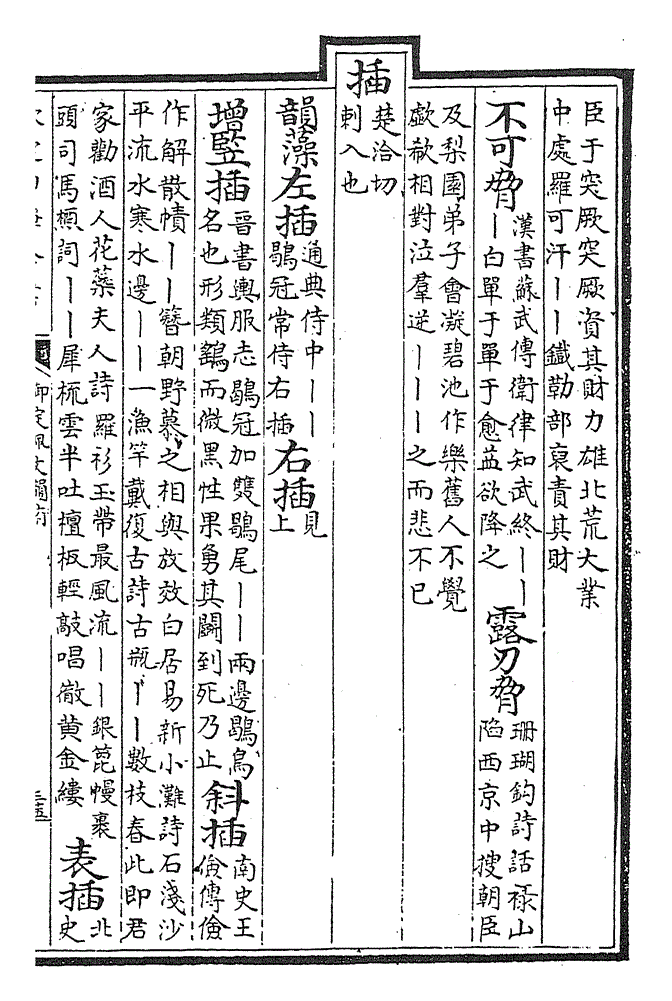 臣于突厥突厥資其財力雄北荒大業
中處羅可汗丨丨鐵勒部裒責其財
不可脅
漢書蘇武傳衛律知武終丨丨
丨白單于單于愈益欲降之
露刃脅
珊瑚鈎詩話祿山
陷西京中搜朝臣
及梨園弟子會凝碧池作樂舊人不覺
歔欷相對泣羣逆丨丨丨之而悲不已
插
楚洽切
刺入也
韻藻左插
通典侍中丨丨
鶡冠常侍右插
右插
見
上
增豎插
晉書輿服志鶡冠加雙鶡尾丨丨兩邊鶡鳥
名也形類鷂而微黑性果勇其鬬到死乃止
斜插
南史王
儉傳儉
作解散幘丨丨簪朝野慕之相與放效白居易新小灘詩石淺沙
平流水寒水邊丨丨一漁竿戴復古詩古瓶丨丨數枝春此即君
家勸酒人花蘂夫人詩羅衫玉帶最風流丨丨銀篦幔裹
頭司馬槱詞丨丨犀梳雲半吐檀板輕敲唱徹黄金縷
表插
北
史
御定佩文韻府